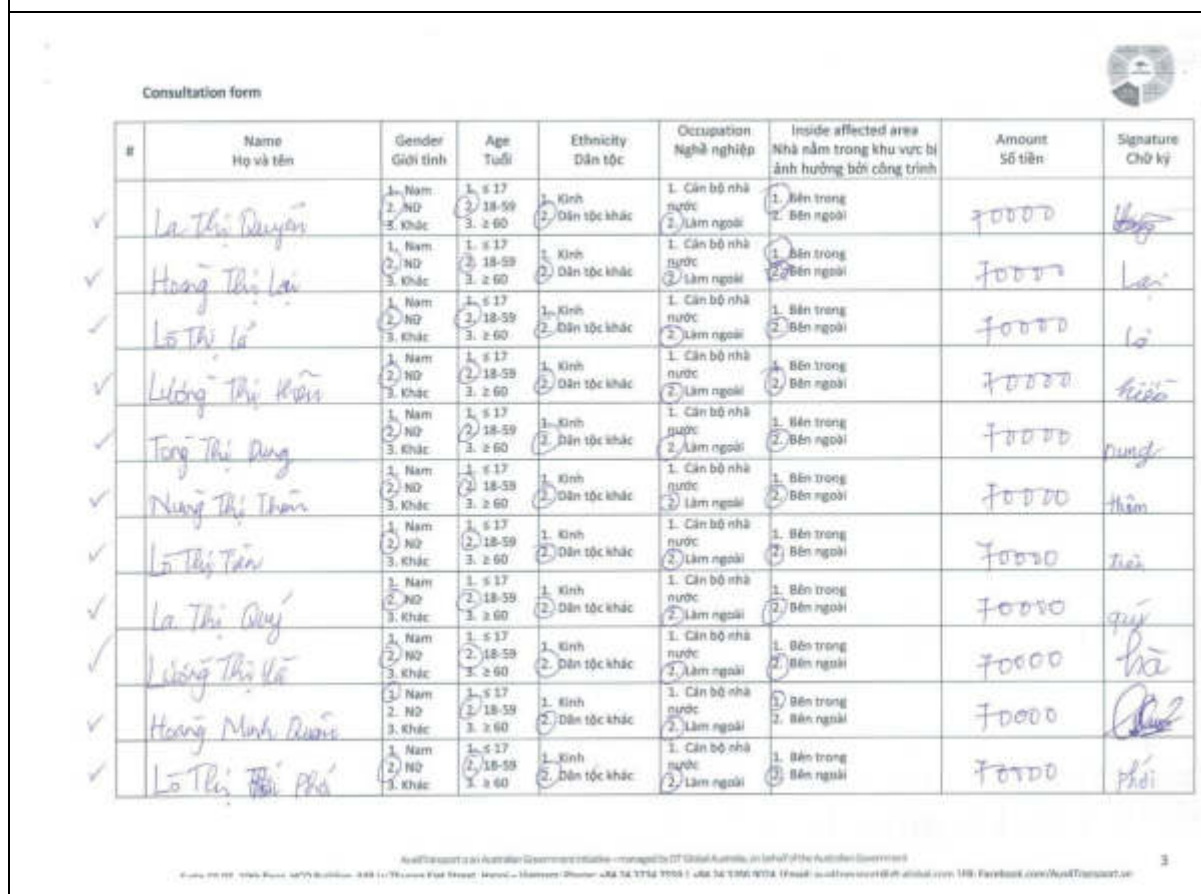 Consultation form
# Name Họ và tên Gender Giới tính Age Tuổi Ethnicity Dân tộc Occupation Nghề nghiệp Inside affected area Nhà nằm trong khu vực bị ảnh hưởng bởi công trình Amount Số tiền Signature Chữ ký
La Thị Quyên 1. Nam 2. Nữ 3. Khác 1. ≤ 17 2. 18-59 3. ≥ 60 1. Kinh 2. Dân tộc khác 1. Cán bộ nhà nước 2. Làm ngoài 1. Bên trong 2. Bên ngoài 70000
Hoàng Thị Lại 1. Nam 2. Nữ 3. Khác 1. ≤ 17 2. 18-59 3. ≥ 60 1. Kinh 2. Dân tộc khác 1. Cán bộ nhà nước 2. Làm ngoài 1. Bên trong 2. Bên ngoài 70000 Lại
Lò Thị 1. Nam 2. Nữ 3. Khác 1. ≤ 17 2. 18-59 3. ≥ 60 1. Kinh 2. Dân tộc khác 1. Cán bộ nhà nước 2. Làm ngoài 1. Bên trong 2. Bên ngoài 70000
Lường Thị 1. Nam 2. Nữ 3. Khác 1. ≤ 17 2. 18-59 3. ≥ 60 1. Kinh 2. Dân tộc khác 1. Cán bộ nhà nước 2. Làm ngoài 1. Bên trong 2. Bên ngoài 70000
Tòng Thị Dung 1. Nam 2. Nữ 3. Khác 1. ≤ 17 2. 18-59 3. ≥ 60 1. Kinh 2. Dân tộc khác 1. Cán bộ nhà nước 2. Làm ngoài 1. Bên trong 2. Bên ngoài 70000 Dung
Thị 1. Nam 2. Nữ 3. Khác 1. ≤ 17 2. 18-59 3. ≥ 60 1. Kinh 2. Dân tộc khác 1. Cán bộ nhà nước 2. Làm ngoài 1. Bên trong 2. Bên ngoài 70000
Lò Thị 1. Nam 2. Nữ 3. Khác 1. ≤ 17 2. 18-59 3. ≥ 60 1. Kinh 2. Dân tộc khác 1. Cán bộ nhà nước 2. Làm ngoài 1. Bên trong 2. Bên ngoài 70000
La Thị Quý 1. Nam 2. Nữ 3. Khác 1. ≤ 17 2. 18-59 3. ≥ 60 1. Kinh 2. Dân tộc khác 1. Cán bộ nhà nước 2. Làm ngoài 1. Bên trong 2. Bên ngoài 70000 quý
Lường Thị Hà 1. Nam 2. Nữ 3. Khác 1. ≤ 17 2. 18-59 3. ≥ 60 1. Kinh 2. Dân tộc khác 1. Cán bộ nhà nước 2. Làm ngoài 1. Bên trong 2. Bên ngoài 70000 hà
Hoàng Minh 1. Nam 2. Nữ 3. Khác 1. ≤ 17 2. 18-59 3. ≥ 60 1. Kinh 2. Dân tộc khác 1. Cán bộ nhà nước 2. Làm ngoài 1. Bên trong 2. Bên ngoài 70000
Lò Thị 1. Nam 2. Nữ 3. Khác 1. ≤ 17 2. 18-59 3. ≥ 60 1. Kinh 2. Dân tộc khác 1. Cán bộ nhà nước 2. Làm ngoài 1. Bên trong 2. Bên ngoài 70000
Aus4Transport is an Australian Government initiative – managed by DT Global Australia, on behalf of the Australian Government
3